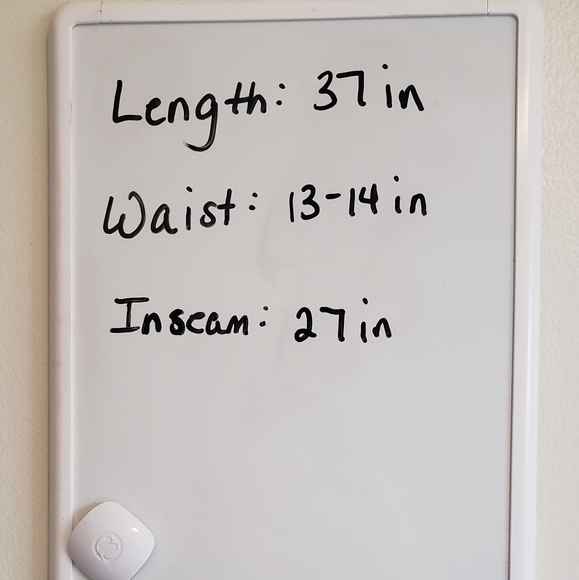 Length: 37 in
Waist: 13-14 in
Inseam: 27 in